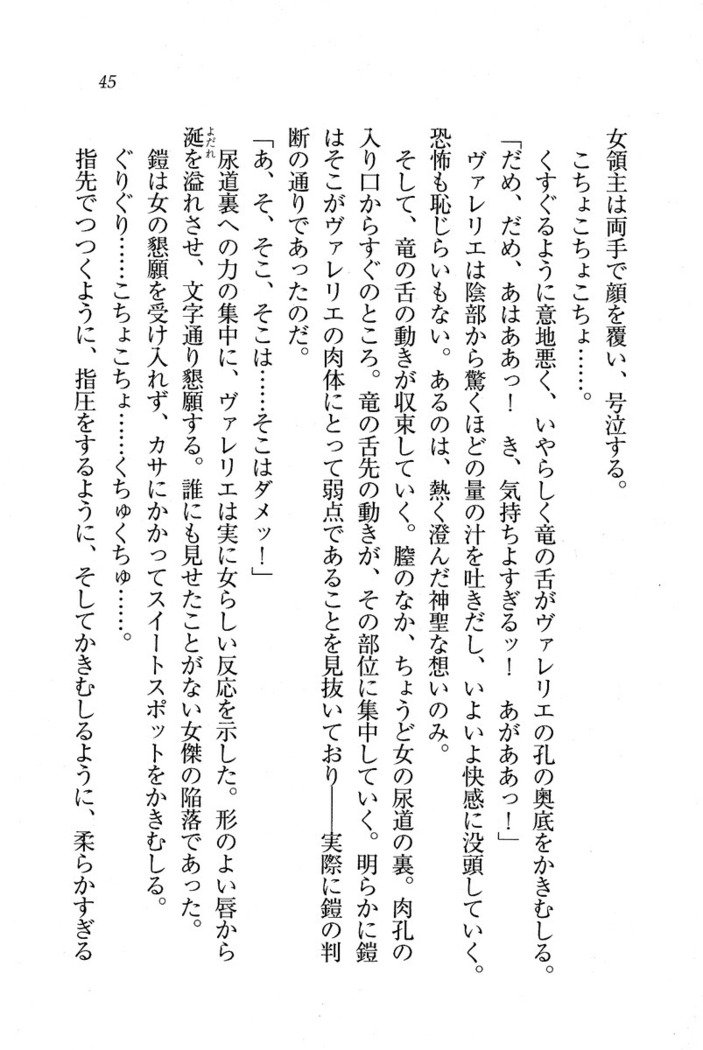 45
女領主は両手で顔を覆い、号泣する。
こちょこちょこちょ……。
くすぐるように意地悪く、いやらしく竜の舌がヴァレリエの孔の奥底をかきむしる。
「だめ、だめ、あはああっ！　き、気持ちよすぎるッ！　あがああっ！」
ヴァレリエは陰部から驚くほどの量の汁を吐きだし、いよいよ快感に没頭していく。
恐怖も恥じらいもない。あるのは、熱く澄んだ神聖な想いのみ。
そして、竜の舌の動きが収束していく。膣のなか、ちょうど女の尿道の裏。肉孔の
入り口からすぐのところ。竜の舌先の動きが、その部位に集中していく。明らかに鎧
はそこがヴァレリエの肉体にとって弱点であることを見抜いており――実際に鎧の判
断の通りであったのだ。
「あ、そ、そこ、そこは……そこはダメッ！」
尿道裏への力の集中に、ヴァレリエは実に女らしい反応を示した。形のよい唇から
涎よだれを溢れさせ、文字通り懇願する。誰にも見せたことがない女傑の陥落であった。
鎧は女の懇願を受け入れず、カサにかかってスイートスポットをかきむしる。
ぐりぐり……こちょこちょ……くちゅくちゅ……。
指先でつつくように、指圧をするように、そしてかきむしるように、柔らかすぎる